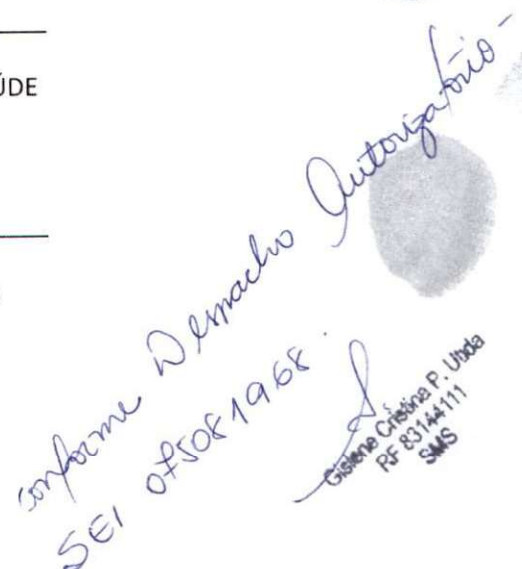 ÚDE
conforme Despacho Autorizatório -
SEI 075081968.
Gislene Cristina P.
RF 83144111
SMS